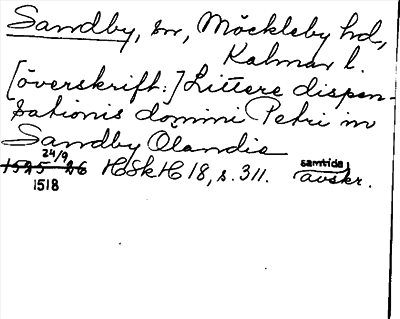 Sandby, sn, Möckleby hd,
Kalmar l.
[överskrift:] Littere dispen-
sationis domini Petri in
Sandby Ölandie
24/9
1525-26 HSkH 18, s. 311. samtida
1518 avskr.